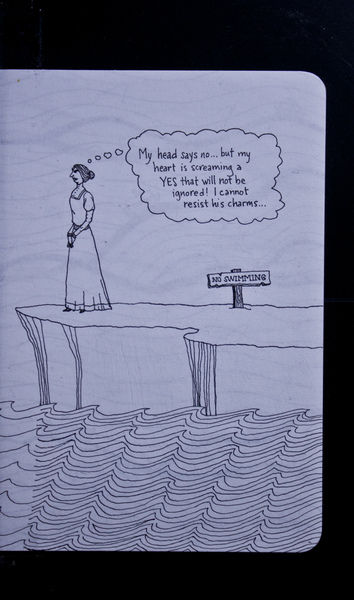 My head says no... but my
heart is screaming a
YES that will not be
ignored! I cannot
resist his charms...
NO SWIMMING